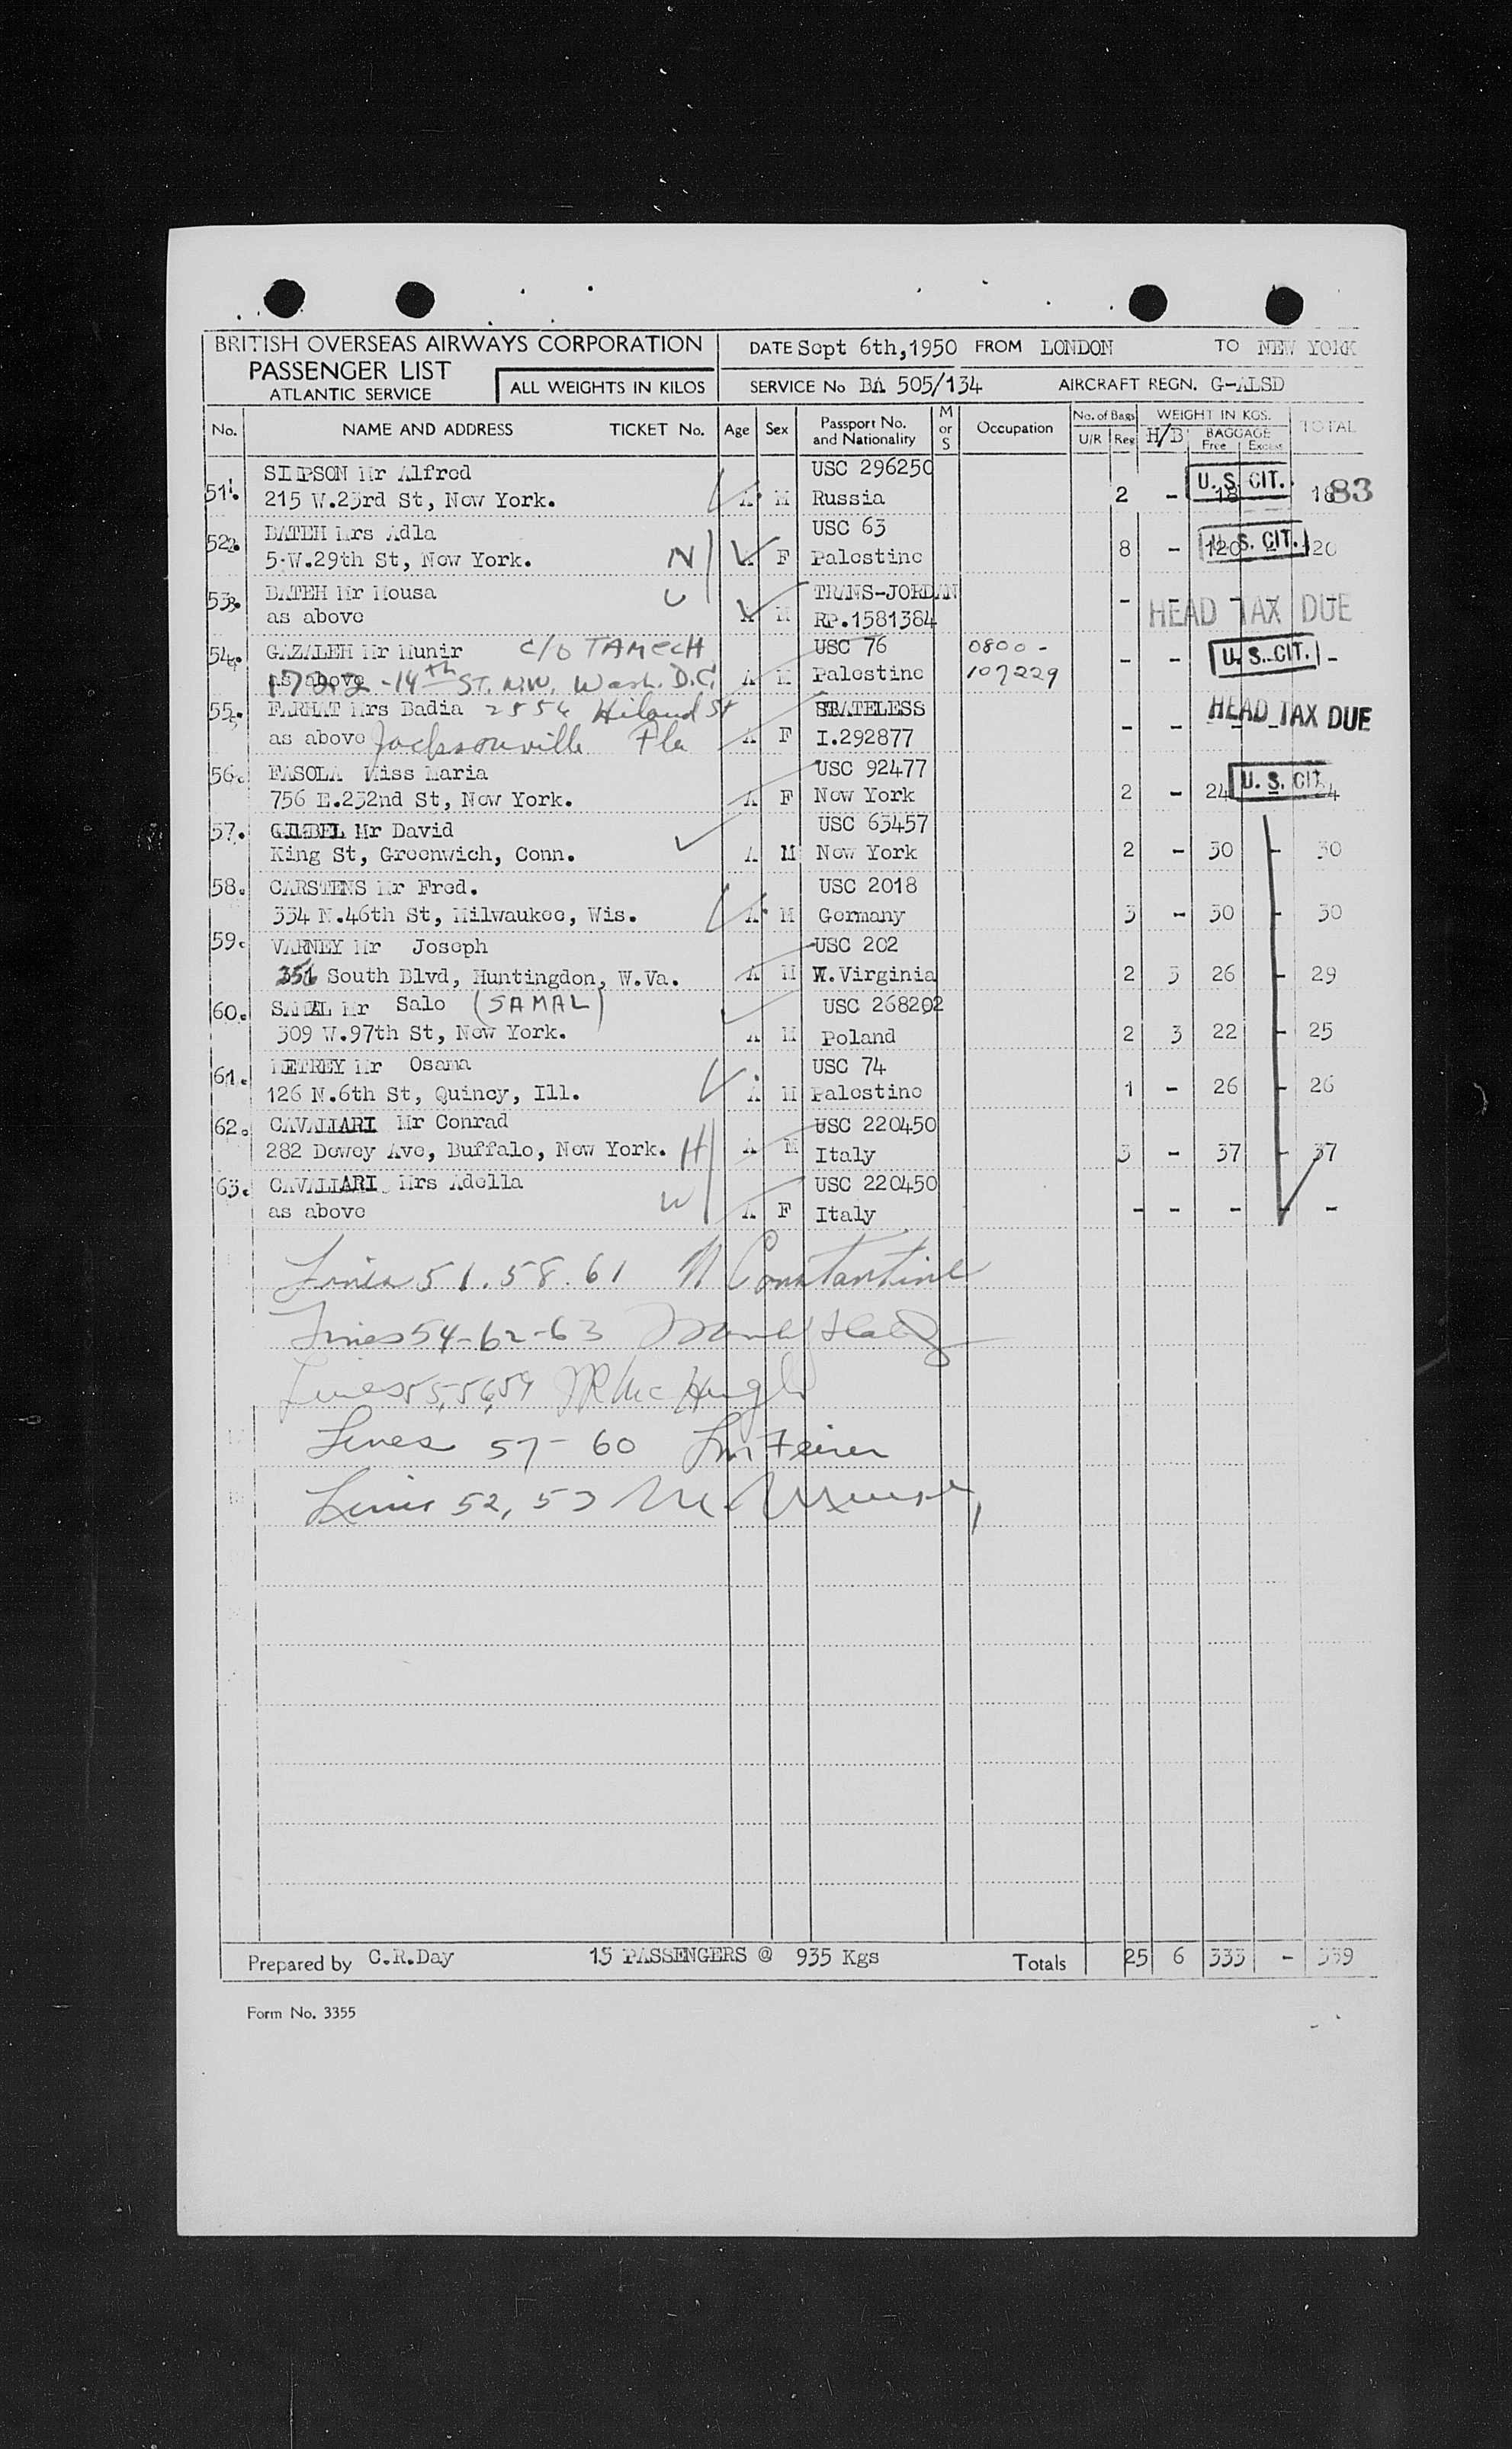 BRITISH OVERSEAS AIRWAYS CORPORATION
PASSENGER LIST
ATLANTIC SERVICE
ALL WEIGHTS IN KILOS
DATE Sept 6th,1950 FROM LONDON TO NEW YORK
SERVICE No BA 505/134 AIRCRAFT REGN. G-ALSD
No. NAME AND ADDRESS TICKET No. Age Sex Passport No. and Nationality M or S Occupation No. of Bags U/R Reg H/B WEIGHT IN KGS. BAGGAGE Free Excess TOTAL
51. SIMPSON Mr Alfred USC 296250 U. S. CIT.
215 W.23rd St, New York. A M Russia 2 - 18 18 83
52. BATEH Mrs Adla USC 63 U. S. CIT.
5.W.29th St, New York. N F Palestine 8 - 120 - 120
53. BATEH Mr Mousa TRANS-JORDAN
as above A M RP.1581384 - - - - - HEAD TAX DUE
54. GAZALEH Mr Munir C/O TAMECH USC 76 0800 -
as above -14th ST. N.W. Wash. D.C. A M Palestine 107229 - - U. S. CIT. -
55. FARHAT Mrs Badia 2554 Hiland St STATELESS
as above Jacksonville Fla A F I.292877 - - HEAD TAX DUE
56. FASOLA Miss Maria USC 92477
756 E.232nd St, New York. A F New York 2 - 24 U. S. CIT 24
57. GIMBEL Mr David USC 63457
King St, Greenwich, Conn. A M New York 2 - 30 - 30
58. CARSTENS Mr Fred. USC 2018
334 N.46th St, Milwaukee, Wis. A M Germany 3 - 30 - 30
59. VARNEY Mr Joseph USC 202
351 South Blvd, Huntingdon, W.Va. A M W.Virginia 2 3 26 - 29
60. SAMAL Mr Salo (SAMAL) USC 268202
309 W.97th St, New York. A M Poland 2 3 22 - 25
61. Mr Osama USC 74
126 N.6th St, Quincy, Ill. A M Palestine 1 - 26 - 26
62. CAVALIARI Mr Conrad USC 220450
282 Dewey Ave, Buffalo, New York. H A M Italy 3 - 37 - 37
63. CAVALIARI Mrs Adella USC 220450
as above W A F Italy - - - - -
Lines 51. 58. 61 N Constantine
Lines 54-62-63
Lines 55,56,59 JR McHugh
Lines 57-60
Lines 52, 53
Prepared by C.R.Day 13 PASSENGERS @ 935 Kgs Totals 25 6 333 - 339
Form No. 3355